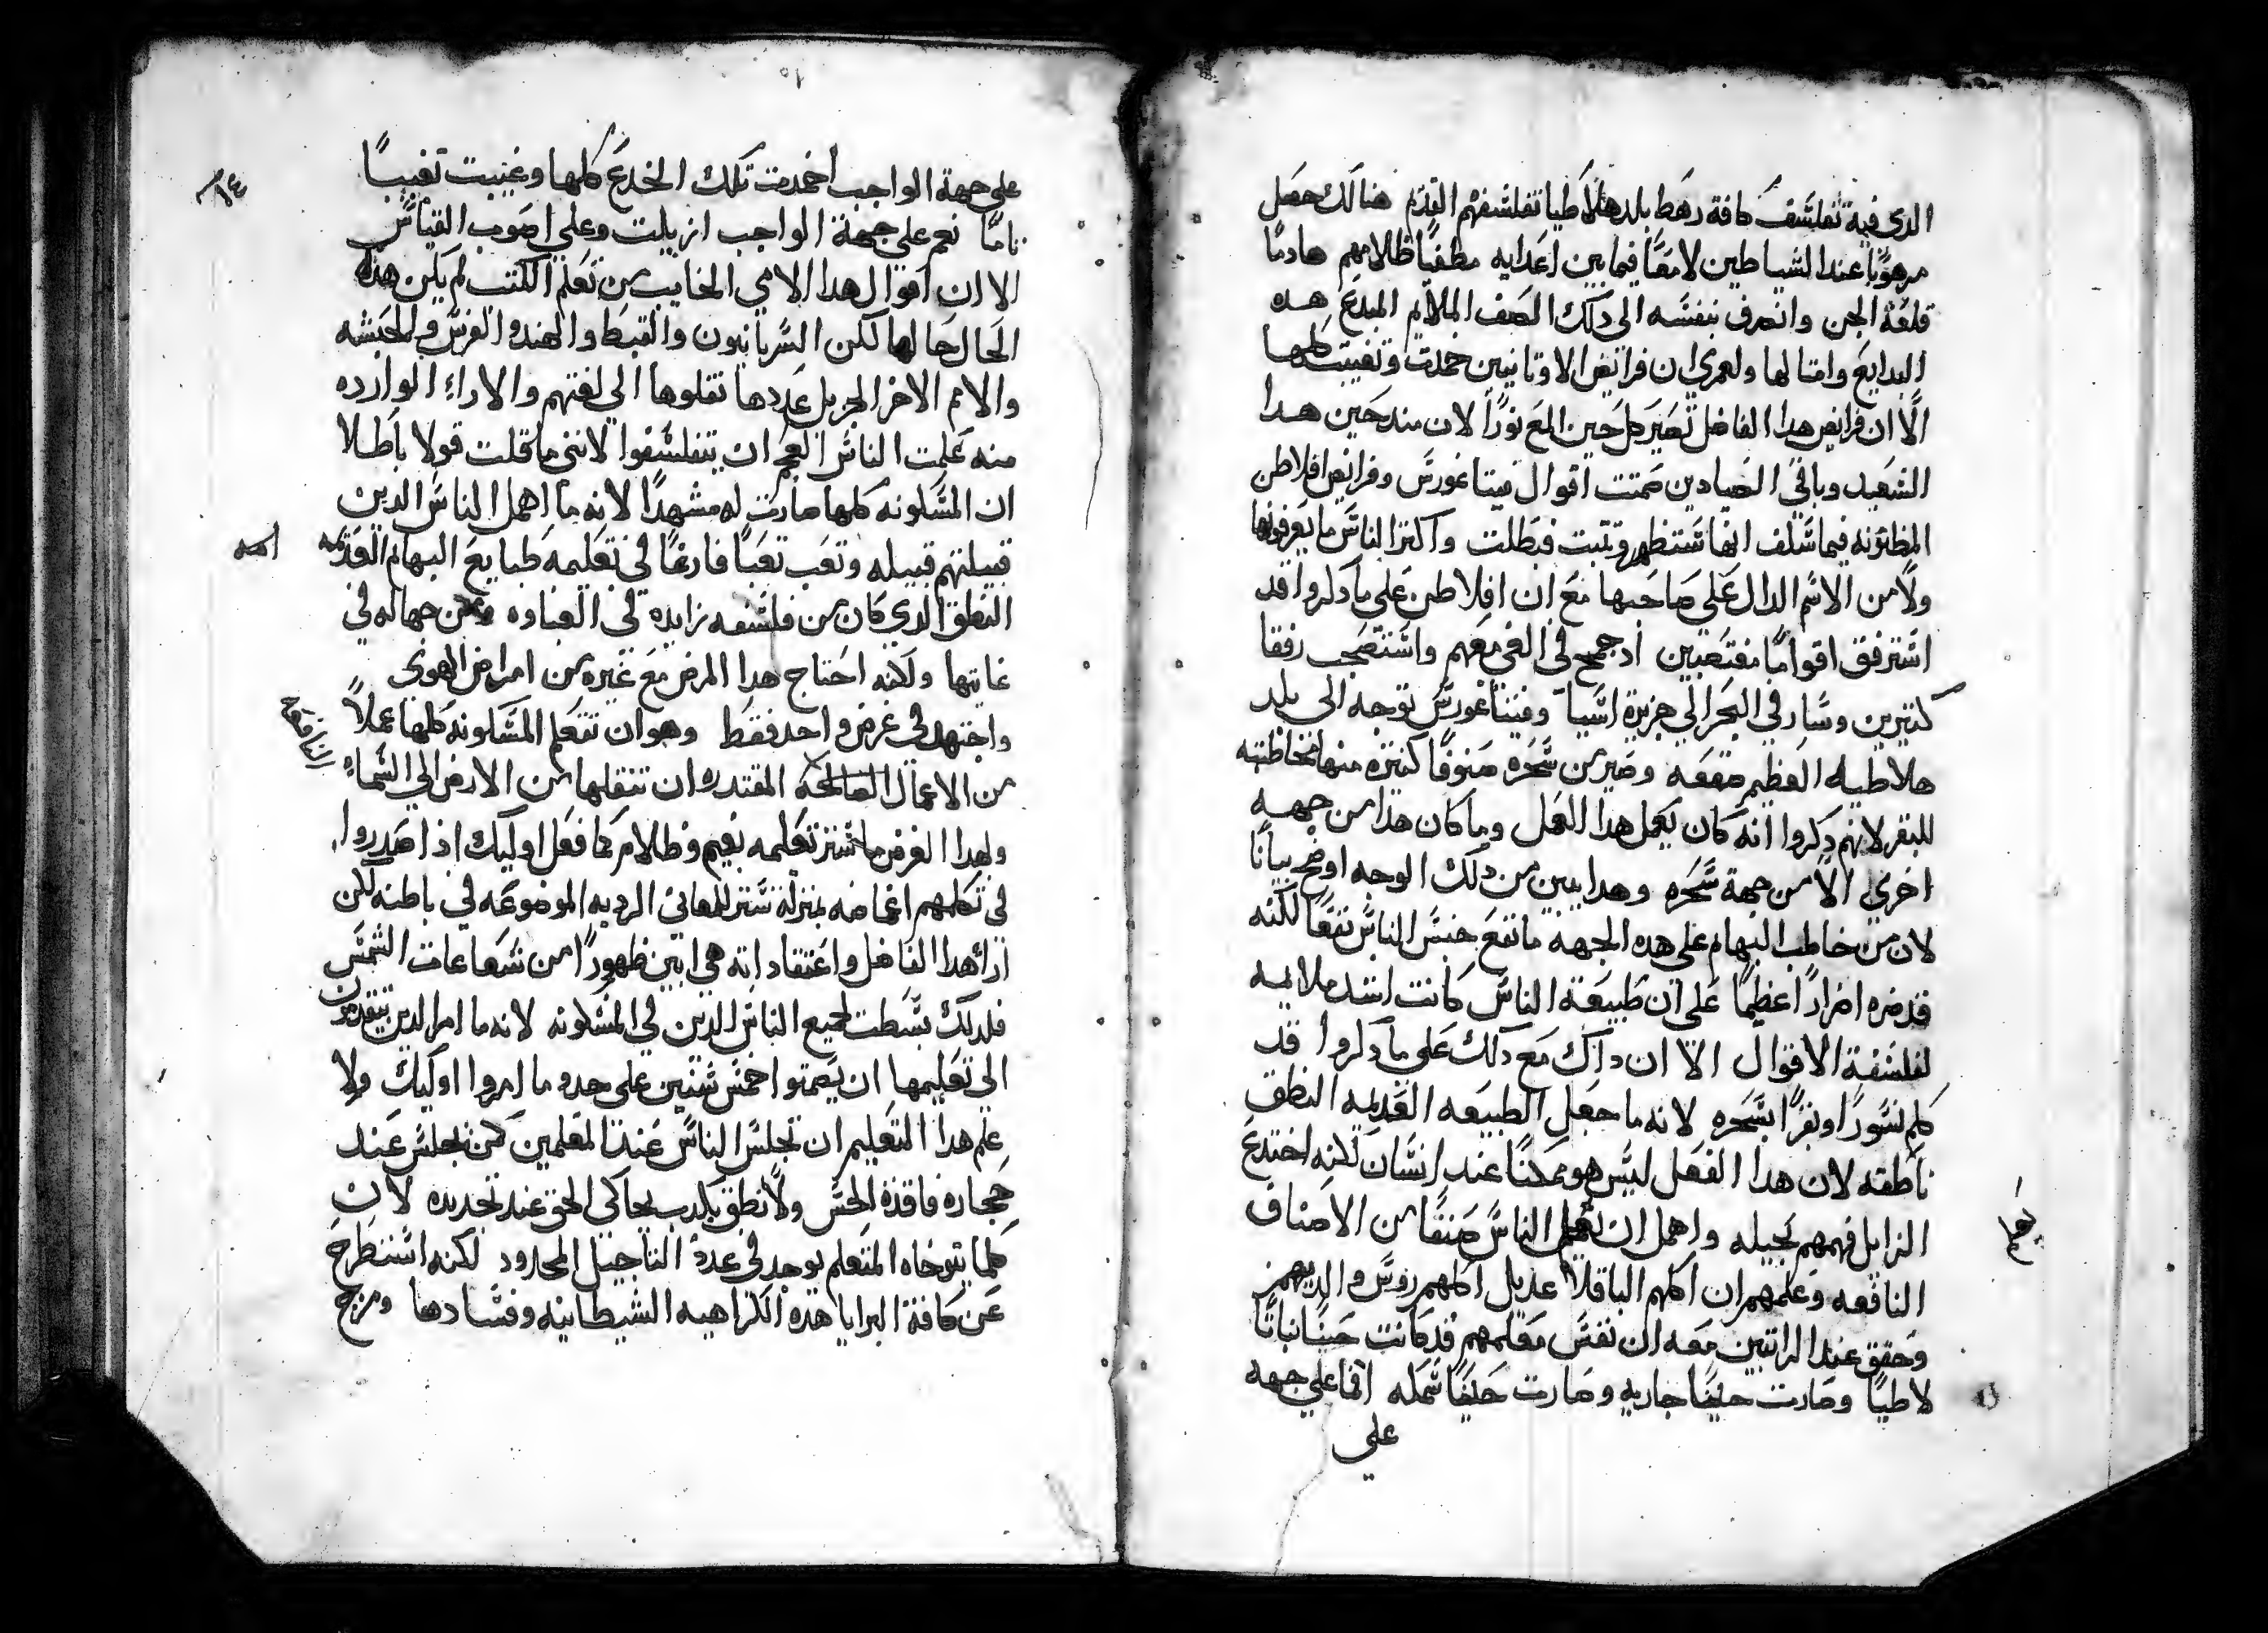 الدي فيه تفلسف كافة رهط بلد هلاطيا تفلسفهم القدم هنالك حصل
مرهوبًا عند الشياطين لامعًا فيما بين اعدايه مطفيًا ظلامهم هادمًا
قلعة الجن وانصرف بنفسه الى دلك الصف الملايم المبدع هده
البدايع وامثالها ولعمري ان فرايض الاوثانيين خمدت وتغيبت كلها
الا ان فرايض هدا الفاضل تصير كل حين المع نورًا لان مند حين هدا
السعيد وباقي الصيادين صمتت اقوال فيتاغورس وفرايض افلاطن
المظنونه فيما سلف انها ستظهر وتثبت فبطلت واكثر الناس ما يعرفونها
ولا من الاسم الدال على صاحبها مع ان افلاطن على ما دكروا قد
استرفق اقوامًا مغتصبين اد جمح في الغي معهم واستصحب رفقا
كثيرين وسار في البحر الي جزيرة اسيا وفيتاغورس توجه الى بلد
هلاطيه العظيم صقعه وصير من سحره صنوفًا كثيره منها مخاطبته
للبقر لانهم دكروا انه كان يعمل هدا العمل وما كان هدا من جهه
اخرى الا من جهة سحره وهدا يبين من دلك الوجه اوضح بيانًا
لان من خاطب البهايم على هده الجهه ما نفع جنس الناس نفعًا لكنه
قد ضره اضرارًا عظيمًا على ان طبيعة الناس كانت اشد ملايمه
لفلسفة الاقوال الا ان داك مع دلك على ما دكروا قد
كلم نسورًا وبقرًا بسحره لانه ما جعل الطبيعه القديمه النطق
ناطقه لان هدا الفعل ليس هو ممكنًا عند انسان لكنه اختدع
الزايل فهمهم بحيله واهمل ان يعلم الناس صنفًا من الاصناف
النافعه وعلمهم ان اكلهم الباقلا عديل اكلهم روس والديهم
وحقق عند الراتبين معه ان نفس معلمهم قد كانت حينًا نباتًا
لاطيًا وصارت حينًا جاريه وصارت حينًا سمكه افما على جهه
على
على جهة الواجب اخمدت تلك الخدع كلها وغيبت تغييبًا
تامًا نعم على جهة الواجب ازيلت وعلى اصوب القياس
الا ان اقوال هدا الامي الخايب من تعلم الكتب لم يكن هده
الحال حالها لكن السريانيون والقبط والهند والفرس والحبشه
والامم الاخر الجزيل عددها نقلوها الى لغتهم والاراء الوارده
منه علمت الناس العجم ان يتفلسفوا لانني ما قلت قولا باطلا
ان المسكونه كلها صارت له مشهدًا لانه ما اهمل الناس الدين
قبيلتهم قبيله وتعب تعبًا فارغًا في تعليمه طبايع البهايم العديمه
النطق الدي كان من فلسفه زايده في الغباوه ومن جهاله في
غايتها ولكنه احتاج هدا المرض مع غيره من امراض الهوى
واجتهد في غرض واحد فقط وهو ان تتعلم المسكونه كلها عملاً
من الاعمال الصالحه المقتدره ان تنقلها من الارض الي السماء
ولهدا الغرض ما ستر تعليمه بغيم وظلام كما فعل اوليك اذا صدروا
في تكلمهم اغماضه بمنزلة ستر للمعاني الرديه الموضوعه في باطنه لكن
اراء هدا الفاضل واعتقاداته هي ابين ظهورًا من شعاعات الشمس
فلدلك بسطت لجميع الناس الدين في المسكونه لانه ما امر الدين يتقدمون
الى تعليمها ان يصمتوا خمس سنين على حدو ما امروا اوليك ولا
علم هدا التعليم ان تجلس الناس عند المعلمين كمن تجلس عند
حجاره فاقدة الحس ولا نطق بكدب يحاكى الحق عند تحديده لان
كلما يتوخاه المتعلم يوجد في عدد التاجيل المحدود لكنه استطرح
عن كافة البرايا هده الكراهيه الشيطانيه وفسادها ومزج